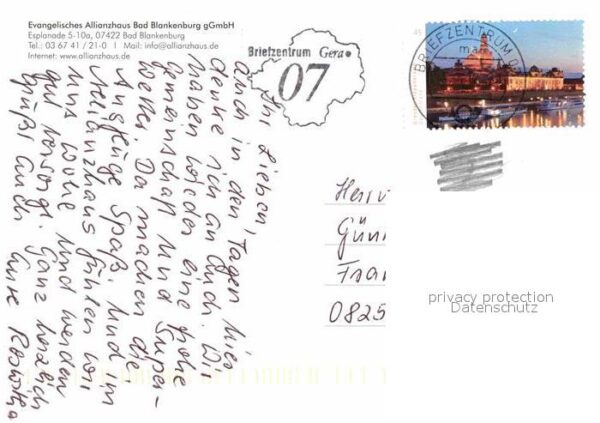 Evangelisches Allianzhaus Bad Blankenburg gGmbH
Esplanade 5-10a, 07422 Bad Blankenburg
Tel.: 03 67 41 / 21-0 I Mail: info@allianzhaus.de
Internet: www.allianzhaus.de
Briefzentrum Gera
07
BRIEFZENTRUM 0
Ihr Lieben!
Auch in den Tagen hier
denke ich an Euch. Wir
haben wieder eine frohe
Gemeinschaft und Super-
wetter. Da machen die
Ausflüge Spaß. Und im
Allianzhaus fühlen wir
uns wohl und werden
gut versorgt. Ganz herzlich
grüßt Euch Eure
Herr
Gün
Fra
0825
privacy protection
Datenschutz